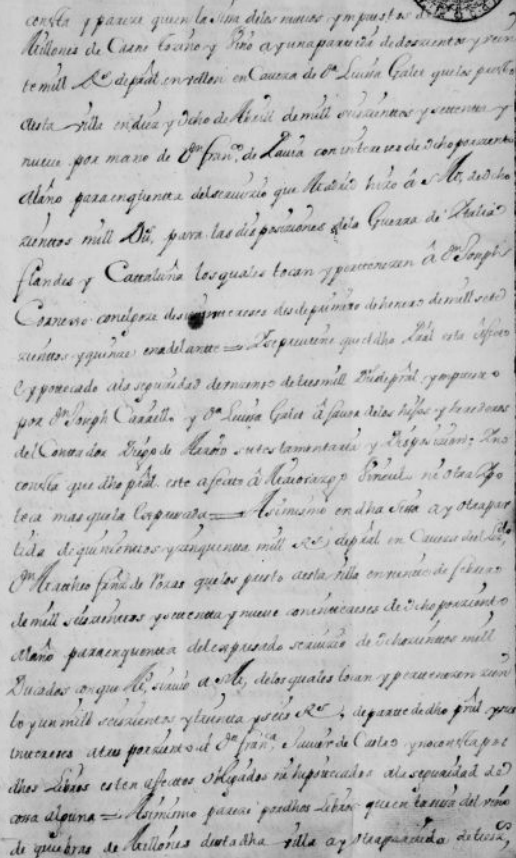 consta y parece que en la Sisa de los nuevos ympuestos de
Millones de Carne tozino y Vino ay una partida de doscientos y vein
te mill Rs de pral. en vellon en Caveza de Da Luisa Galet que los presto
a esta villa en diez y ocho de Abril de mill seiscientos y settenta y
nueve por mano de Dn franco. de Lauia con intereses de ocho por ciento
al año para en quentta del servizio que Madrid hizo â S Md, de ocho
zienttos mill Ds, para las disposiziones de la Guerra de Italia
flandes y Cattaluña los quales tocan y perttenezen â Dn Joseph
Cornexo con el goze de sus intereses desde primero de henero de mill sete
zienttos y quinze en adelantte = Y se previene que el dho Pral esta afecto
e ypottecado a la seguridad de un zenso de tres mill Ds de pral ympuesto
por Dn Joseph Carrillo y Da Luisa Galet â favor de los hijos y herederos
del Conttador Diego de su testamentaria y Disposizion; Y no
consta que dho pral. este afecto â Mayorazgo Vinculo ni otra Ypo
teca mas que la expresada = Asimismo en dha Sisa ay otra par
tida de quinientos y zinquentta mill Rs; de pral en Caveza del Lizdo,
Dn Mattheo fernz de que los presto a esta villa en veinte de febrero
de mill seiscientos y settenta y nueve con intereses de ocho por ziento
al año para en quentta del expresado servizio de ochozientos mill
Ducados con que Md, sirvio a S Md, de los quales tocan y pertenezen zien
to y un mill seiscientos y treinta y seis Rs, de parte de dho pral y sus
intereses a tres por ziento â Dn franca. Xavier de Castro y no consta por
dhos Libros esten afectos obligados ni hipotecados a la seguridad de
cosa alguna = Asimismo pareze por dhos Libros que en la sisa del vino
de quiebras de Millones desta dha villa ay otra partida de